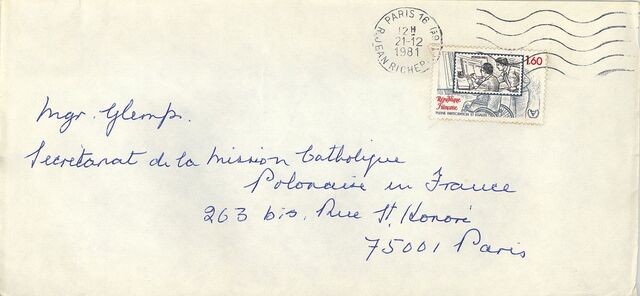 PARIS 16
12H
21-12
1981
R. JEAN RICHEP
1.60
République
Française
PLEINE PARTICIPATION ET ÉGALITÉ
Mgr. Glemp.
Secrétariat de la Mission Catholique
Polonaise en France
263 bis, Rue St. Honoré
75001 Paris